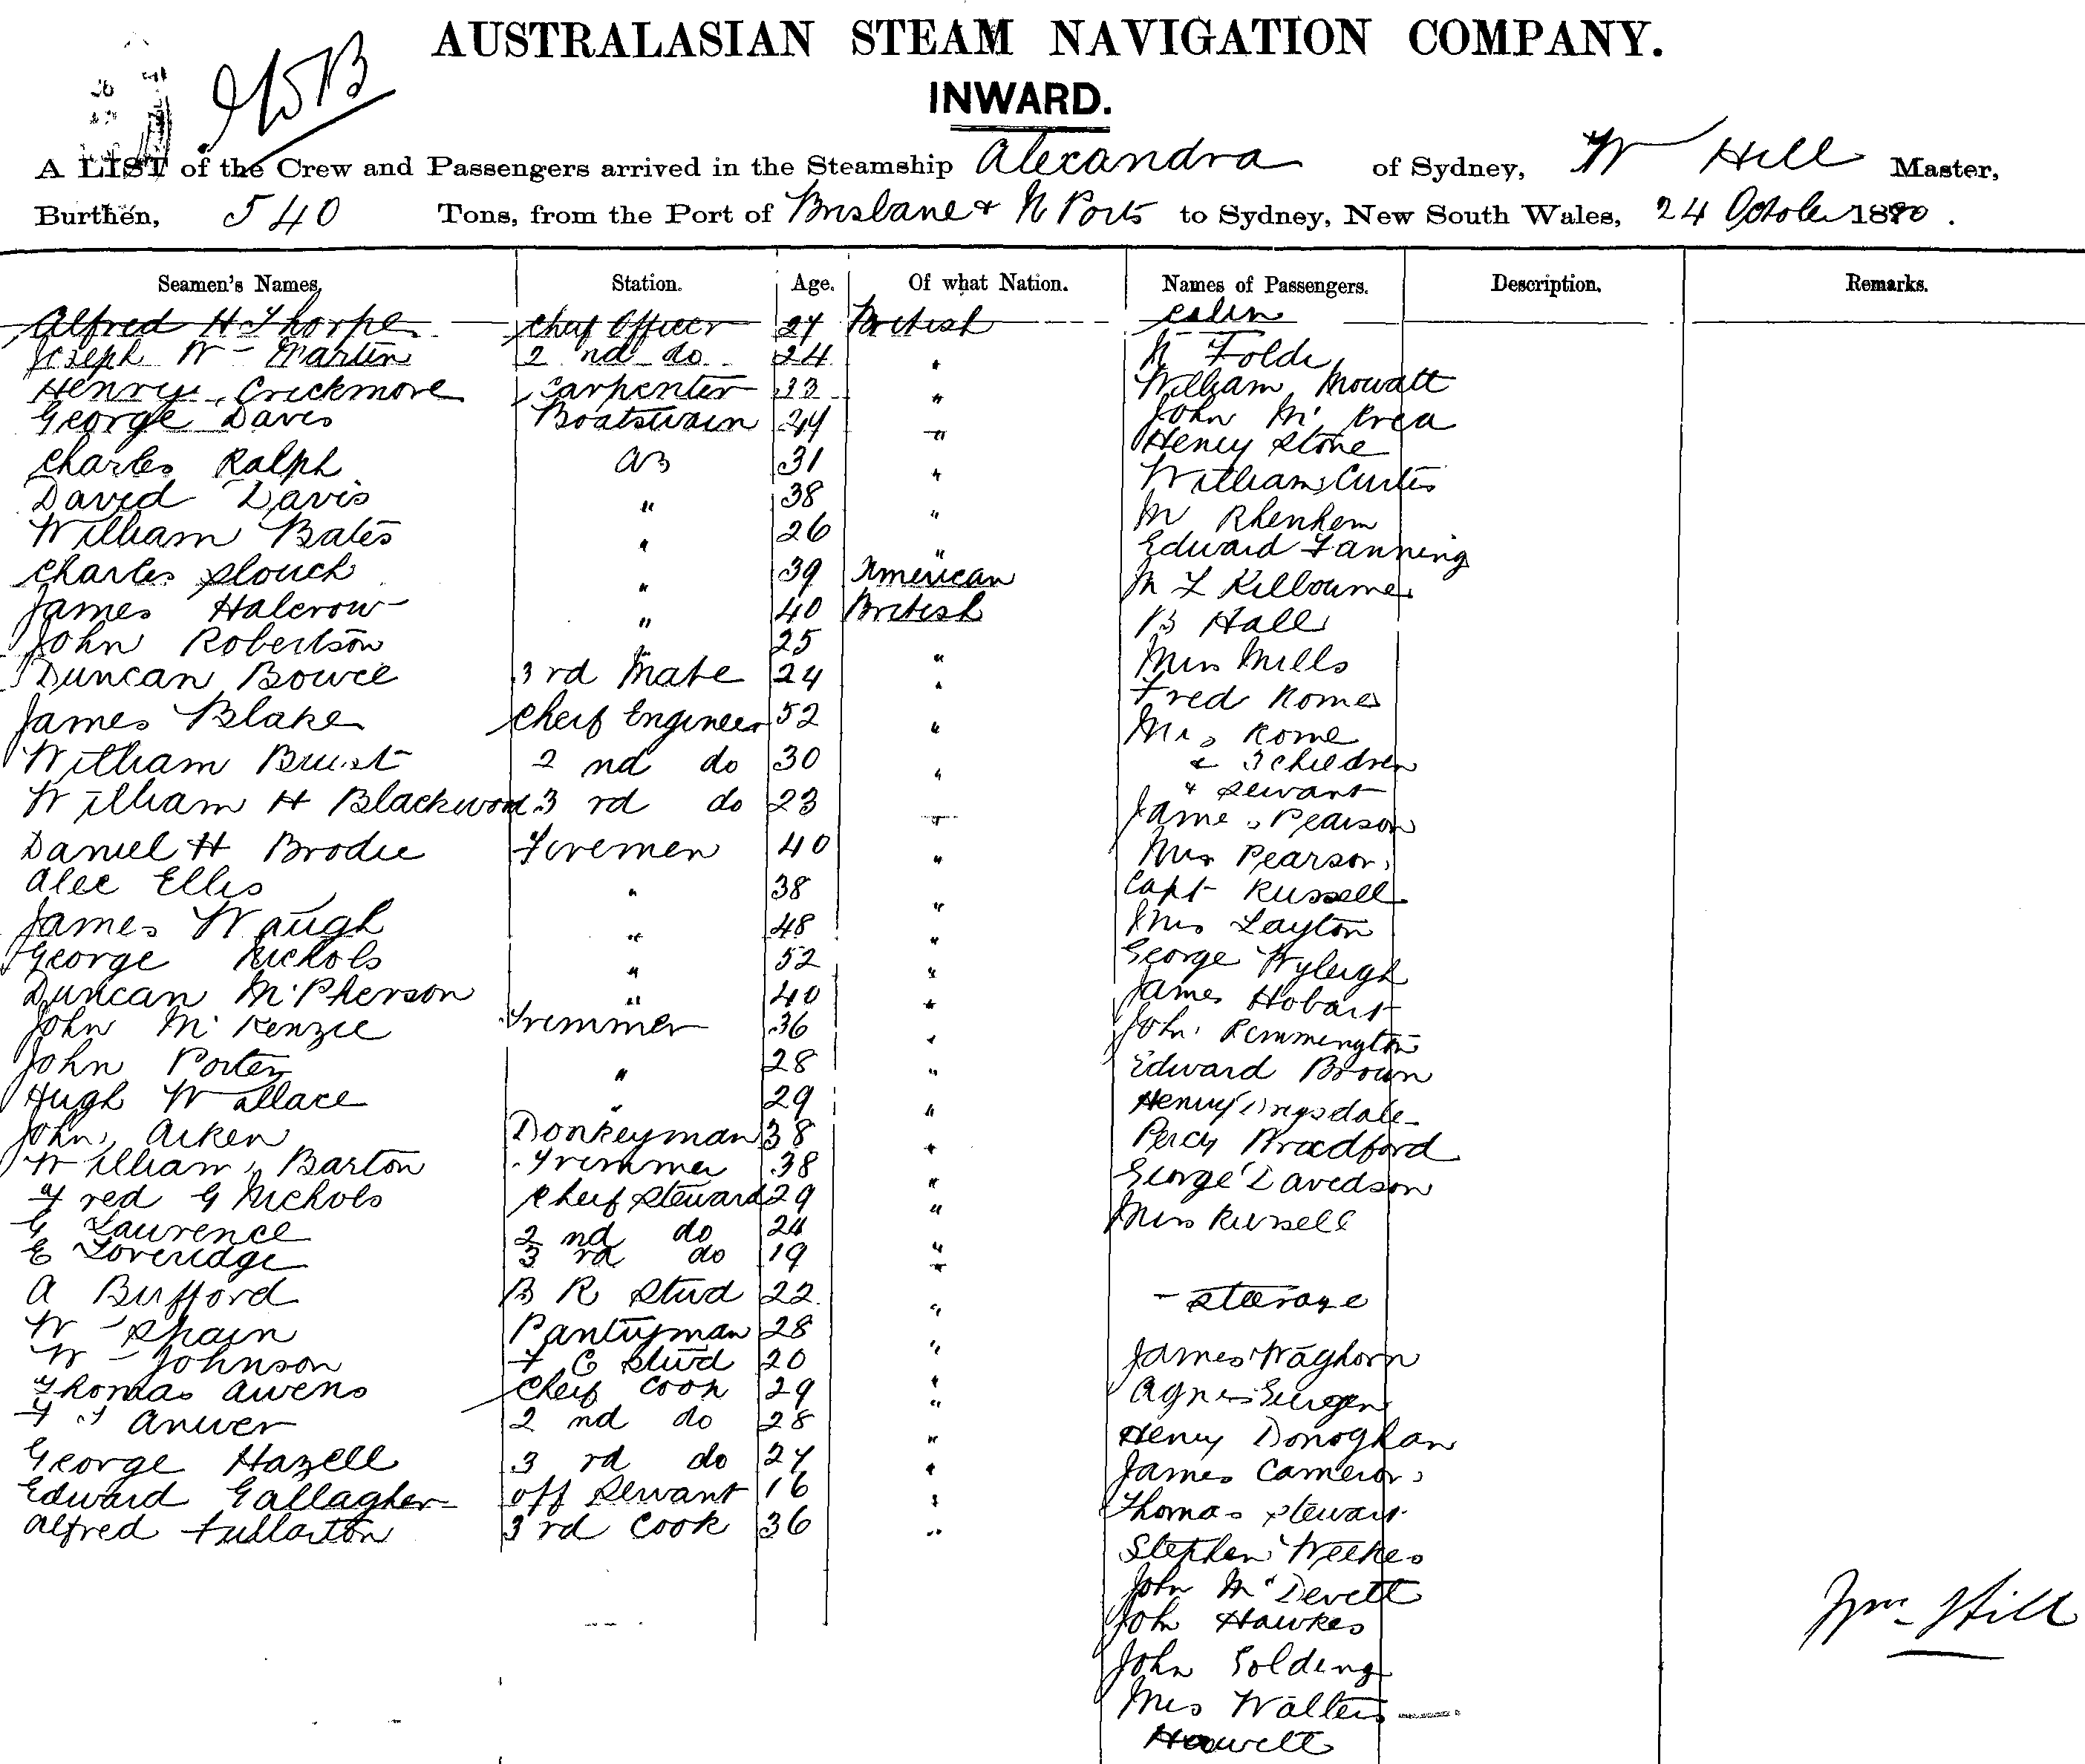 AUSTRALASIAN STEAM NAVIGATION COMPANY.
INWARD.
A LIST of the Crew and Passengers arrived in the Steamship Alexandra of Sydney, W Hill Master,
Burthen, 540 Tons, from the Port of Brisbane & N Ports to Sydney, New South Wales, 24 October 1880.
Seamen's Names, Station. Age. Of what Nation. Names of Passengers. Description. Remarks.
Alfred H Thorpe Cheif Officer 27 British Cabin
Joseph W Martin 2 nd do 24 " N Folde
Henry Crickmore Carpenter 33 " William Mowatt
George Davis Boatswain 44 " John Mc Crea
Henry Stone
Charles Ralph AB 31 " William Curtis
David Davis " 38 " M Rhenhem
William Bates " 26 " Edward Fanning
Charles Slouch " 39 American M L Kilbourne
James Halcrow " 40 British B Hall
John Robertson " 25 " Mrs Mills
Duncan Bowie 3 rd Mate 24 " Fred Rome
James Blake Cheif Engineer 52 " Mrs Rome
William 2 nd do 30 " & 3 children
& Servant
William H Blackwood 3 rd do 23 " James Pearson
Daniel H Brodie Firemen 40 " Mrs Pearson
Alec Ellis " 38 " Capt Russell
James Waugh " 48 " Mrs Layton
George Nichols " 52 " George Wyleigh
Duncan McPherson " 40 " James Hobart
John McKenzie Trimmer 36 " John Remmington
John Porter " 28 " Edward Brown
Hugh Wallace " 29 " Henry
John Aiken Donkeyman 38 " Percy Bradford
William Barton Trimmer 38 " George Davidson
Fred G Nichols Cheif Steward 29 " Mrs Russell
G Laurence 2 nd do 24 "
E Loveridge 3 rd do 19 "
A Bufford B R Stwd 22 " Steerage
W Spain Pantryman 28 "
W Johnson F C Stwd 20 " James Waghorn
Thomas Awens Cheif Cook 29 " Agnes
F J Anwer 2 nd do 28 " Henry Donoghan
George Hazell 3 rd do 27 " James Cameron
Edward Gallagher off Servant 16 " Thomas Stewart
Alfred Fullarton 3 rd Cook 36 " Stephen Weekes
John McDevett
John Hawkes
John Golding
Mrs Walters
Howell
Wm Hill